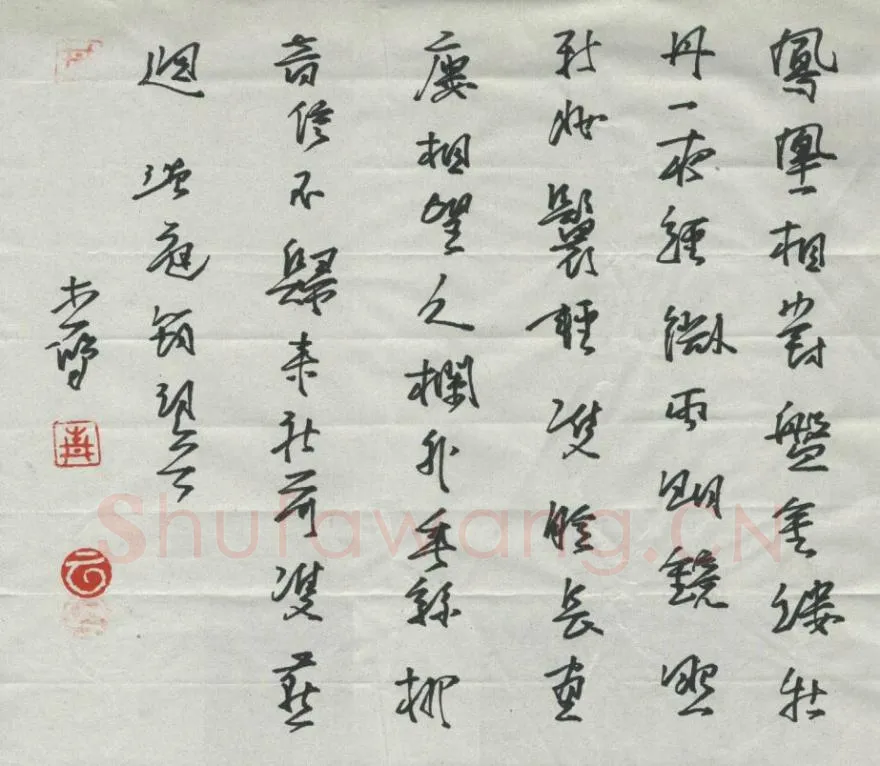 鳳凰相對盤金縷牡
丹一夜經微雨明鏡照
新妝鬢輕雙臉長畫
廔相望久欄外垂絲柳
音信不歸來社前雙燕
迴 温庭筠
Shufawang.CN